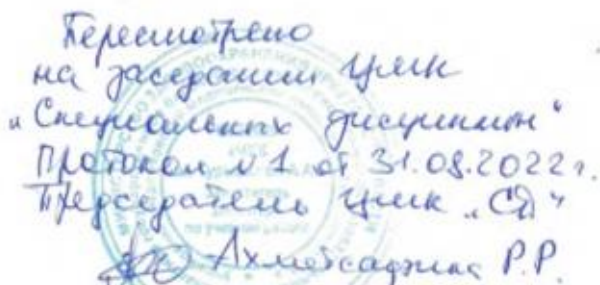 Пересмотрено
на заседании ЦМК
„Специальных дисциплин“
Протокол № 1 от 31.08.2022г.
Председатель ЦМК „СД“
Ахметсагина Р.Р.